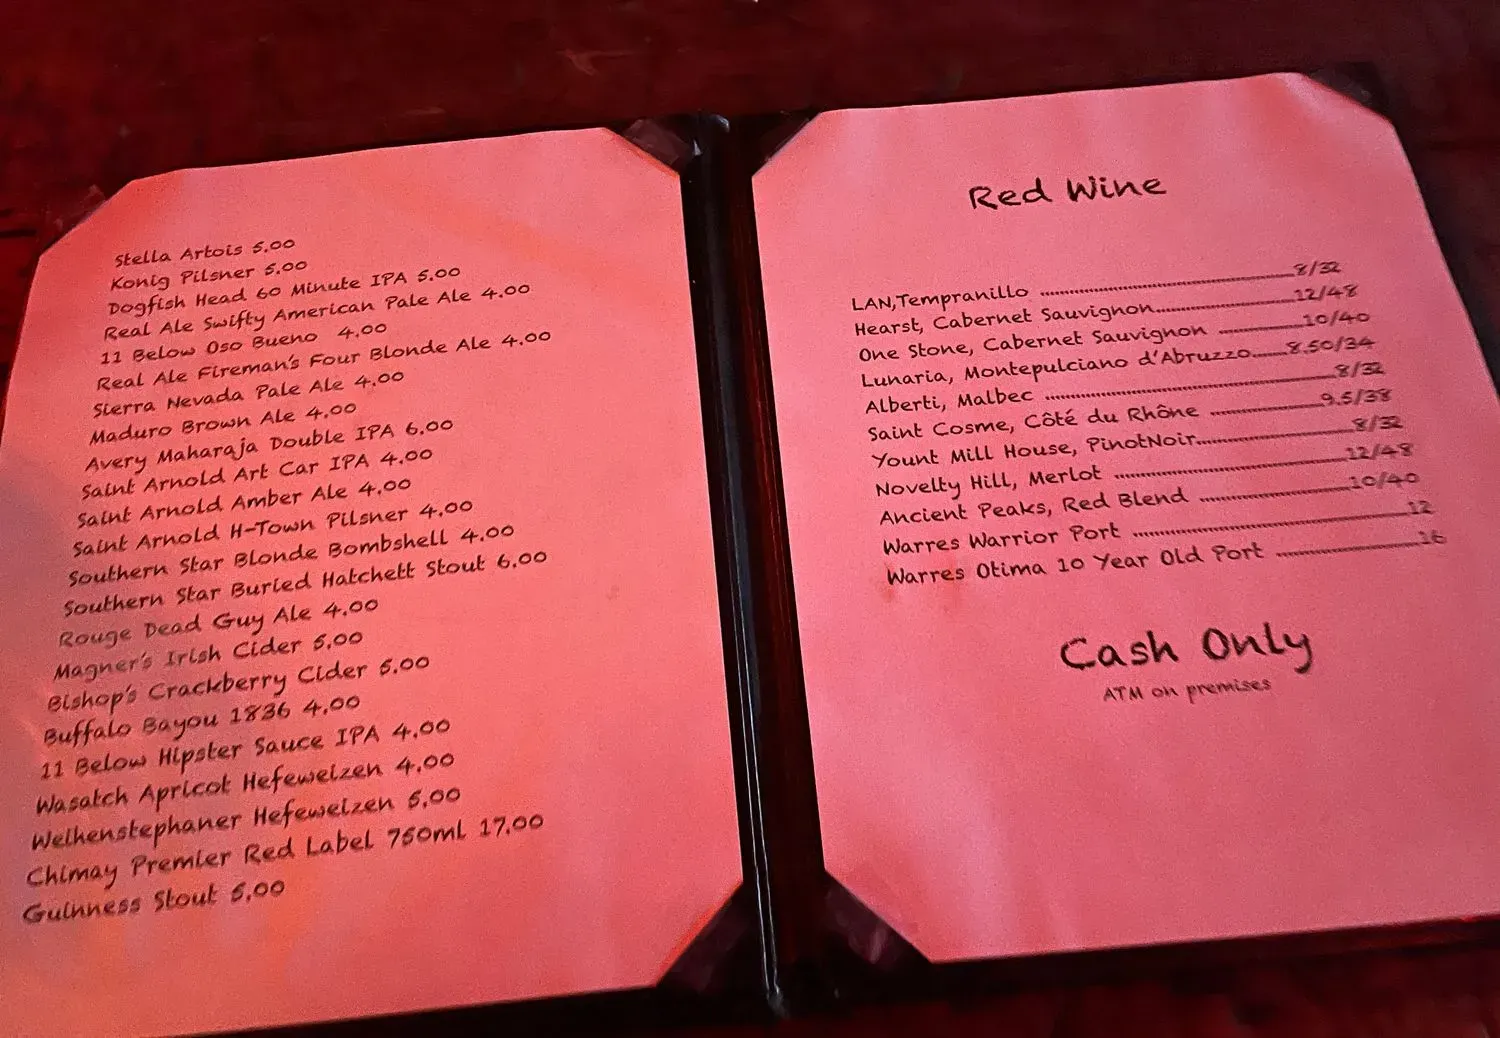 Stella Artois 5.00
Konig Pilsner 5.00
Dogfish Head 60 Minute IPA 5.00
Real Ale Swifty American Pale Ale 4.00
11 Below Oso Bueno 4.00
Real Ale Fireman's Four Blonde Ale 4.00
Sierra Nevada Pale Ale 4.00
Maduro Brown Ale 4.00
Avery Maharaja Double IPA 6.00
Saint Arnold Art Car IPA 4.00
Saint Arnold Amber Ale 4.00
Saint Arnold H-Town Pilsner 4.00
Southern Star Blonde Bombshell 4.00
Southern Star Buried Hatchett Stout 6.00
Rouge Dead Guy Ale 4.00
Magner's Irish Cider 5.00
Bishop's Crackberry Cider 5.00
Buffalo Bayou 1836 4.00
11 Below Hipster Sauce IPA 4.00
Wasatch Apricot Hefeweizen 4.00
Weihenstephaner Hefeweizen 5.00
Chimay Premier Red Label 750ml 17.00
Guinness Stout 5.00
Red Wine
LAN,Tempranillo ........ 8/32
Hearst, Cabernet Sauvignon........ 12/48
One Stone, Cabernet Sauvignon ........ 10/40
Lunaria, Montepulciano d'Abruzzo........ 8.50/34
Alberti, Malbec ........ 8/32
Saint Cosme, Côté du Rhône ........ 9.5/38
Yount Mill House, PinotNoir........ 8/32
Novelty Hill, Merlot ........ 12/48
Ancient Peaks, Red Blend ........ 10/40
Warres Warrior Port ........ 12
Warres Otima 10 Year Old Port ........ 16
Cash Only
ATM on premises